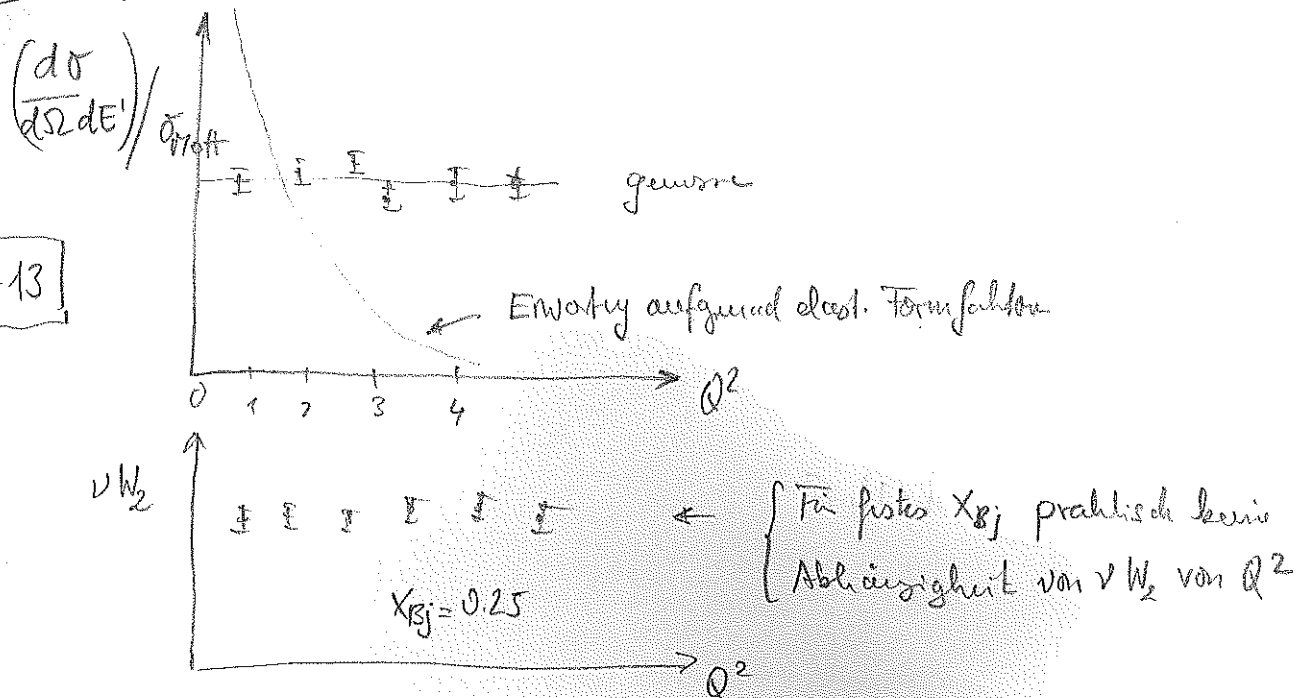 (dσ/dΩdE')/σ_Mott
gemessen
13
Erwartung aufgrund elast. Formfaktor
0 1 2 3 4 Q²
νW₂
Für festes X_Bj praktisch keine
Abhängigkeit von νW₂ von Q²
X_Bj = 0.25
Q²